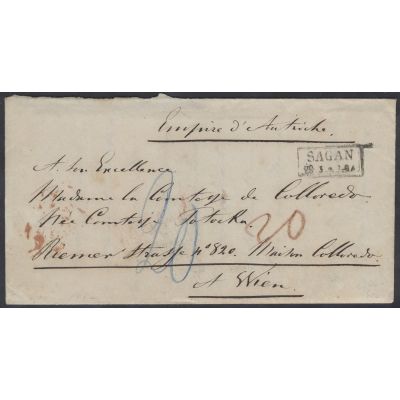 Empire d'Autriche.
SAGAN
A Son Excellence
Madame la Comtesse de Colloredo
Née Comtesse Potocka
20
20
Riemer Strasse nº 820. Maison Colloredo
A Wien.